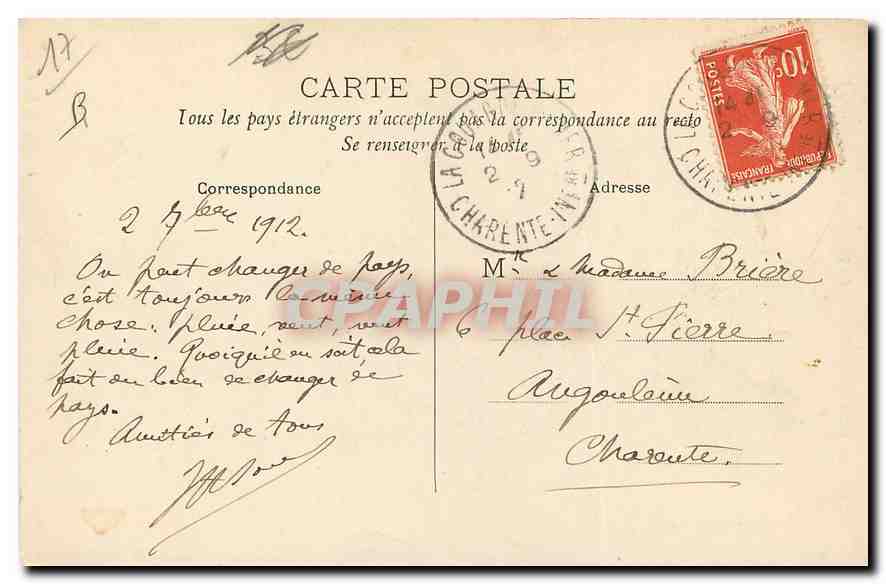 17
B
CARTE POSTALE
Tous les pays étrangers n'acceptent pas la correspondance au recto
Se renseigner à la poste
Correspondance
2 7bre 1912.
On peut changer de pays,
c'est toujours la même
chose. pluie, vent, vent
pluie. Quoiqu'il en soit cela
fait du bien de changer de
pays.
Amitiés de tous
Adresse
Mr & Madame Brière
6 place St. Pierre.
Angoulême
Charente.
10c
POSTES
REPUBLIQUE FRANÇAISE
LA COU
MER
2 9
CHARENTE-INFRE
LA CO
2 9
CHARENTE
CPAPHIL